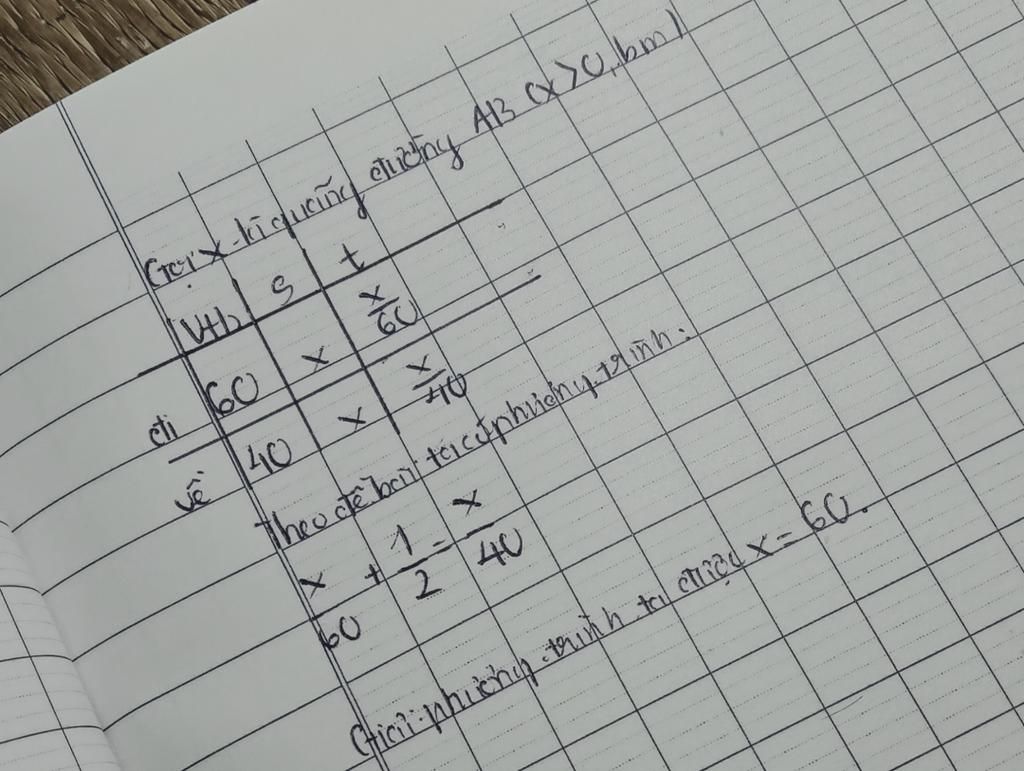 Gọi x là quãng đường AB (x > 0, km)
v s t
đi 60 x x/60
về 40 x x/40
Theo đề bài ta có phương trình:
x/60 + 1/2 = x/40
Giải phương trình ta được x = 60.